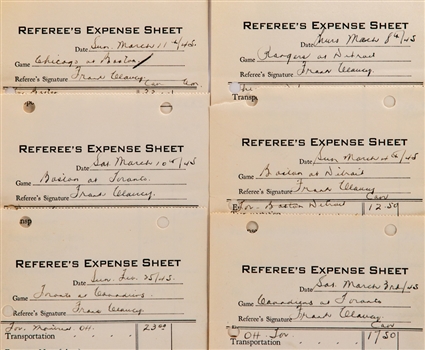 REFEREE'S EXPENSE SHEET
Date Sun. March 11th/45
Game Chicago at Boston
Referee's Signature Frank Clancy
REFEREE'S EXPENSE SHEET
Date Sat March 10th/45
Game Boston at Toronto
Referee's Signature Frank Clancy
nsp
REFEREE'S EXPENSE SHEET
Date Sun. Feb. 25/45
Game Toronto at Canadiens
Referee's Signature Frank Clancy
Tor. Montreal Ott. 23.00
Transportation
REFEREE'S EXPENSE SHEET
Date Thurs March 8th/45
Game Rangers at Detroit
Referee's Signature Frank Clancy
Transp
REFEREE'S EXPENSE SHEET
Date Sun March 4th/45
Game Boston at Detroit
Referee's Signature Frank Clancy
Tor. Boston Detroit 12.50
REFEREE'S EXPENSE SHEET
Date Sat. March 3rd/45
Game Canadiens at Toronto
Referee's Signature Frank Clancy
Ott Tor 17.50
Transportation